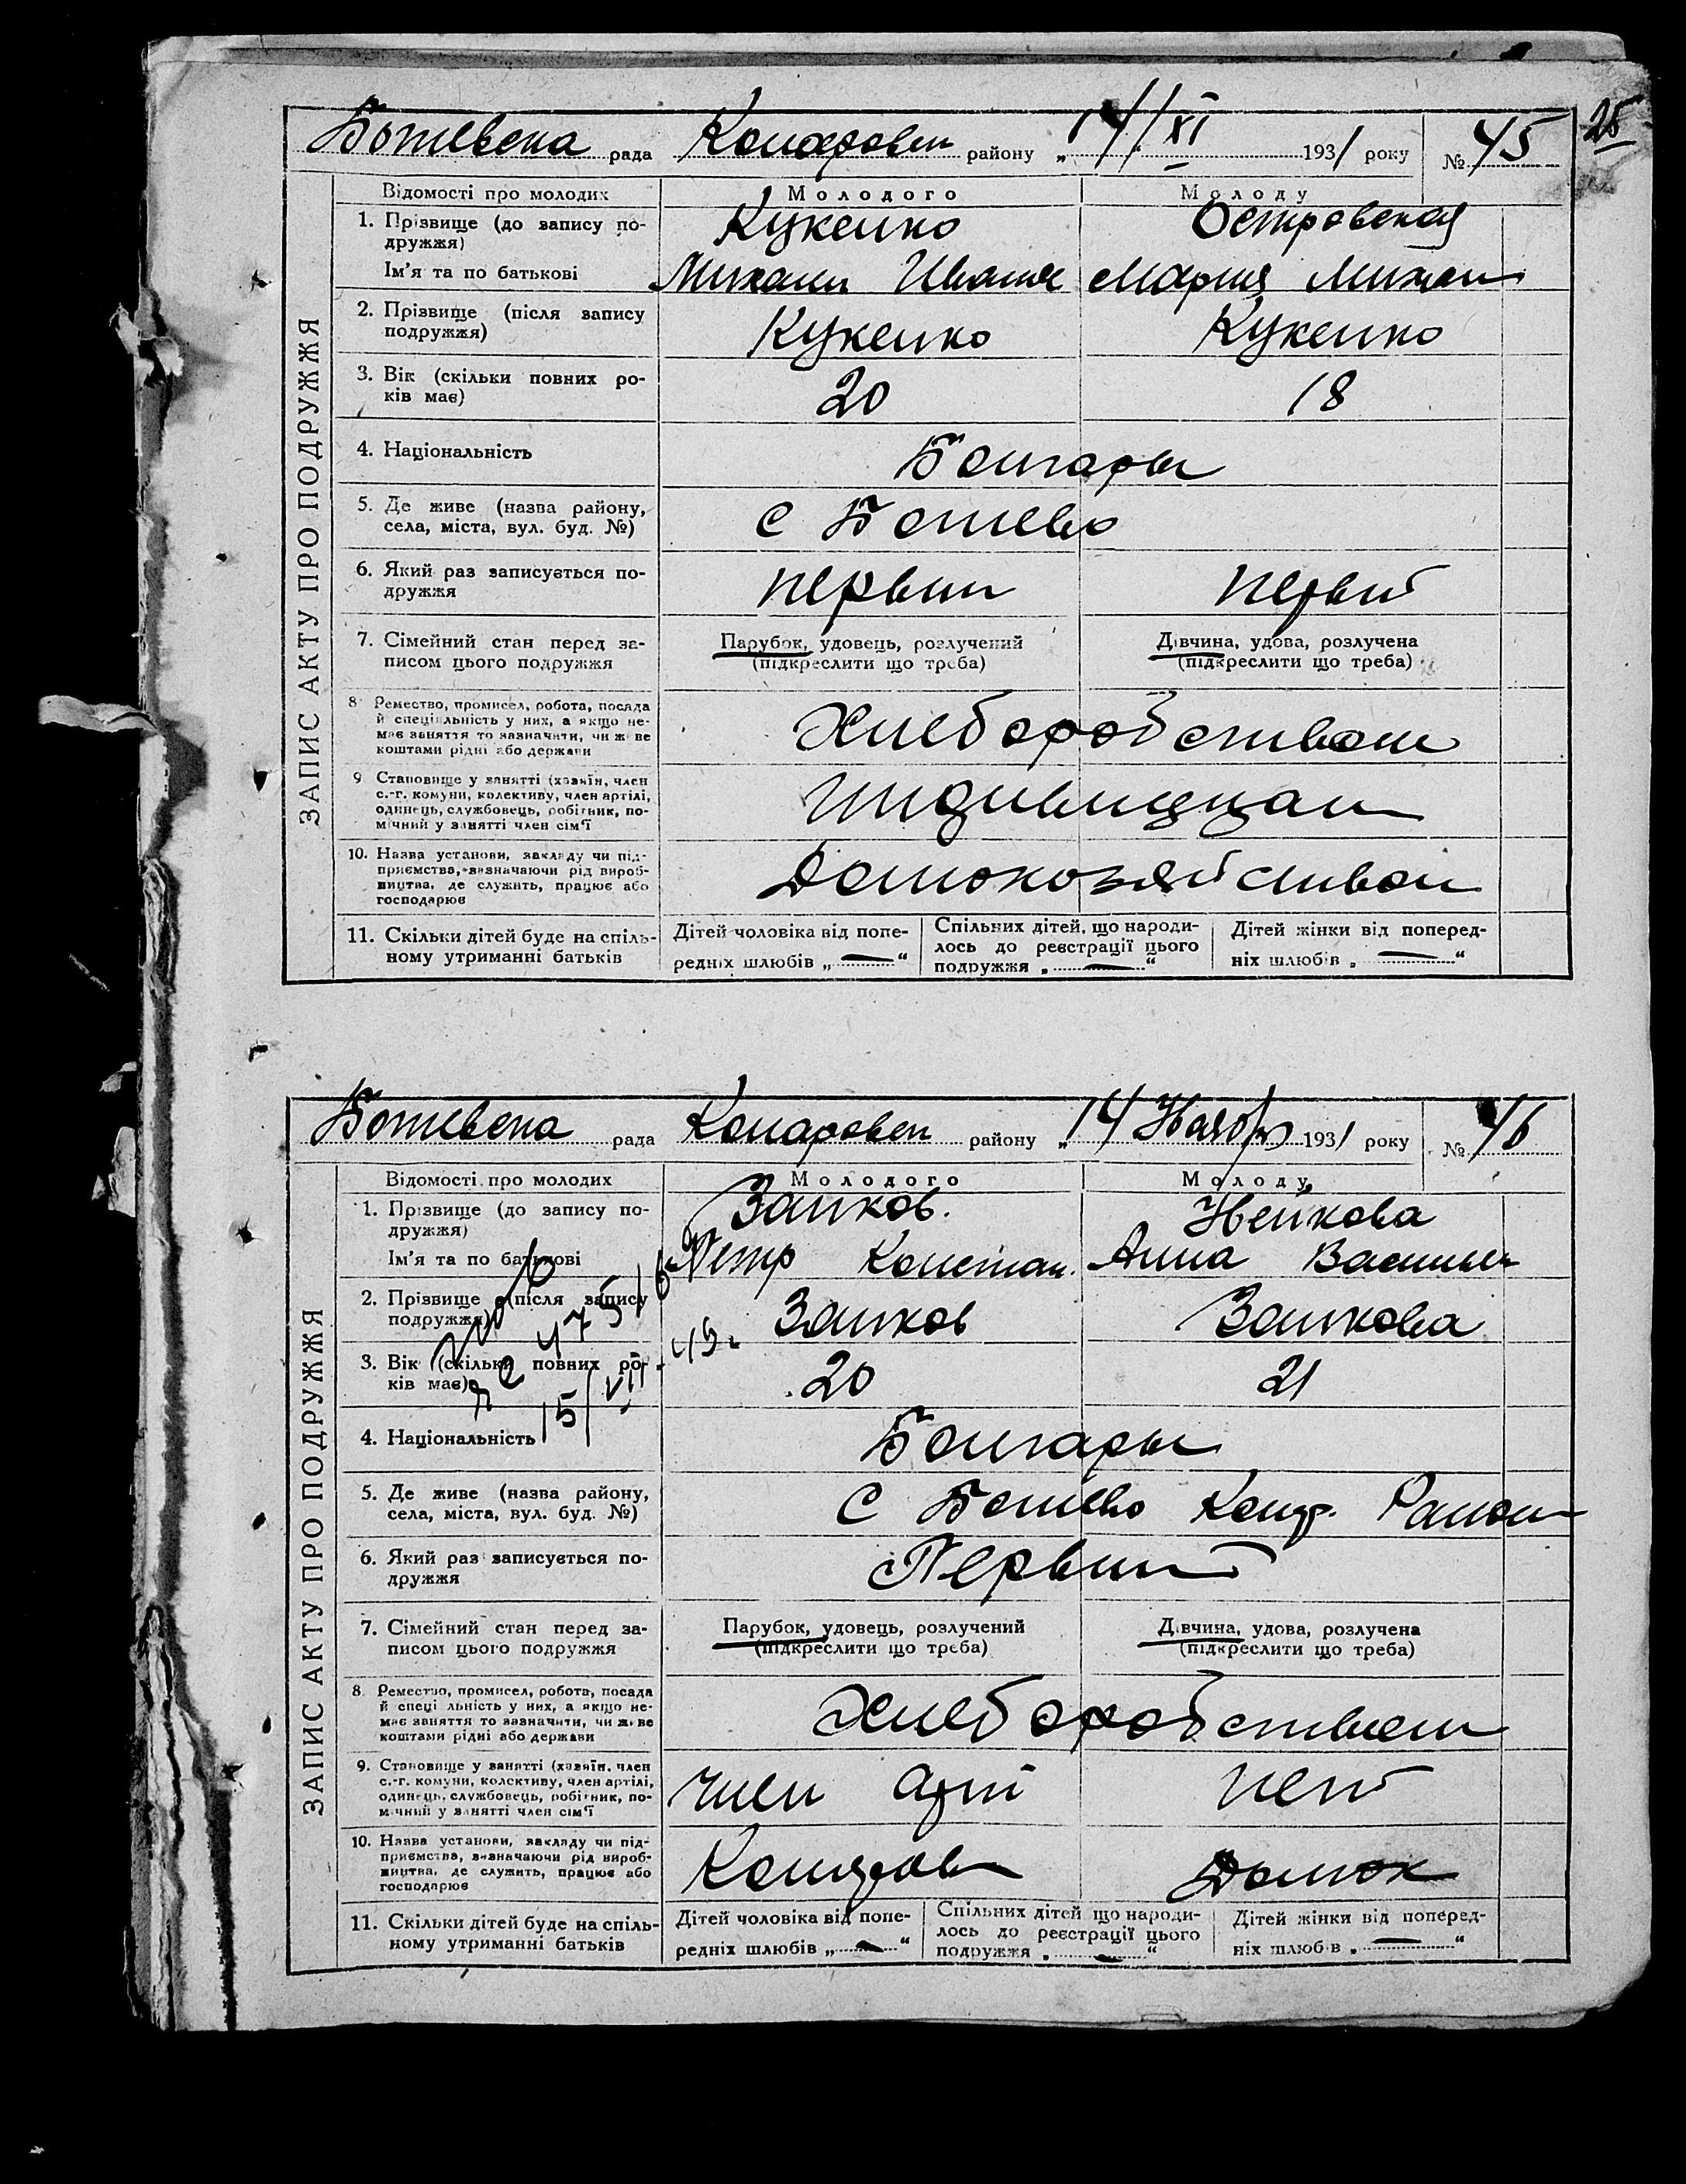 25
Ботевска рада Коларовск району „14/XI 1931 року № 45
ЗАПИС АКТУ ПРО ПОДРУЖЖЯ
Відомості про молодих Молодого Молоду
1. Прізвище (до запису по-
дружжя) Кукенко Островская
Ім'я та по батькові Михаил Иванов Мария Михаил
2. Прізвище (після запису
подружжя) Кукенко Кукенко
3. Вік (скільки повних ро-
ків має) 20 18
4. Національність Болгары
5. Де живе (назва району,
села, міста, вул. буд. №) с Ботево
6. Який раз записується по-
дружжя первый первый
7. Сімейний стан перед за- Парубок, удовець, розлучений Дівчина, удова, розлучена
писом цього подружжя (підкреслити що треба) (підкреслити що треба)
8 Ремество, промисел, робота, посада
й спеціяльність у них, а якщо не-
має заняття то зазначити, чи живе
коштами рідні або держави Хлеборобством
9 Становище у занятті (хазяїн, член
с.-г. комуни, колективу, член артілі,
одинець, службовець, робітник, по-
мічний у занятті член сім'ї Индивидуал
10. Назва установи, закладу чи під-
приємства, визначаючи рід вироб-
ництва, де служить, працює або
господарює Домохозяйством
11. Скільки дітей буде на спіль- Дітей чоловіка від попе- Спільних дітей, що народи- Дітей жінки від поперед-
ному утриманні батьків редніх шлюбів „—“ лось до реєстрації цього ніх шлюбів „—“
подружжя „—“
Ботевска рада Коларовск району „14 Ноября 1931 року № 46
ЗАПИС АКТУ ПРО ПОДРУЖЖЯ
Відомості про молодих Молодого Молоду
1. Прізвище (до запису по-
дружжя) Запков. Нейкова
Ім'я та по батькові Петр Констан. Анна Василь
2. Прізвище (після запису
подружжя) Запков Запкова
3. Вік (скільки повних ро-
ків має) 20 21
15/VII-49.
4. Національність Болгары
5. Де живе (назва району,
села, міста, вул. буд. №) с Ботево Колар. Район
6. Який раз записується по-
дружжя Первый
7. Сімейний стан перед за- Парубок, удовець, розлучений Дівчина, удова, розлучена
писом цього подружжя (підкреслити що треба) (підкреслити що треба)
8 Ремество, промисел, робота, посада
й спеціяльність у них, а якщо не-
має заняття то зазначити, чи живе
коштами рідні або держави Хлеборобством
9. Становище у занятті (хазяїн, член
с.-г. комуни, колективу, член артілі,
одинець, службовець, робітник, по-
мічний у занятті член сім'ї член арт нет
10. Назва установи, закладу чи під-
приємства, визначаючи рід вироб-
ництва, де служить, працює або
господарює Домох
11. Скільки дітей буде на спіль- Дітей чоловіка від попе- Спільних дітей що народи- Дітей жінки від поперед-
ному утриманні батьків редніх шлюбів „—“ лось до реєстрації цього ніх шлюбів „—“
подружжя „—“